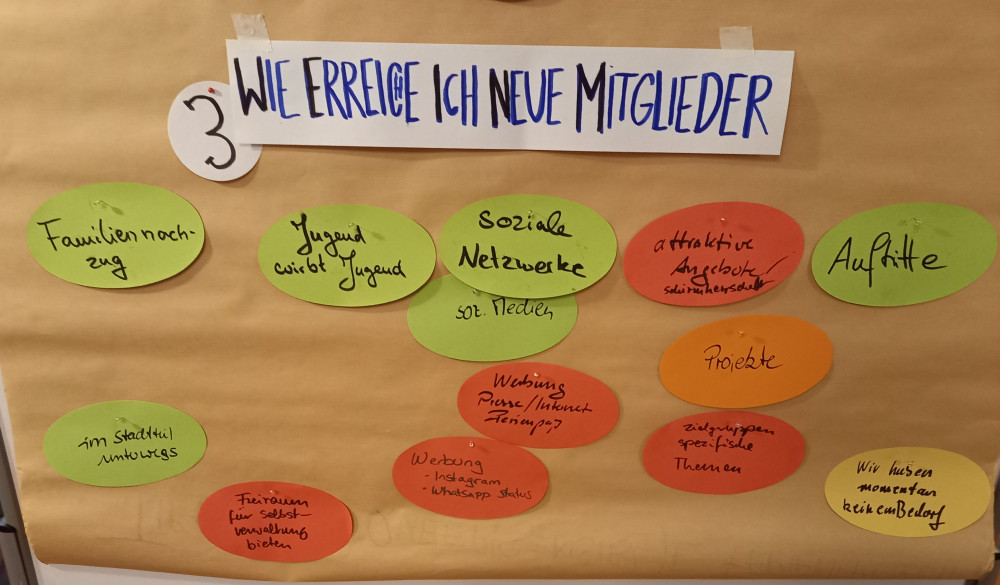 3
WIE ERREICHE ICH NEUE MITGLIEDER
Familiennach-
zug
Jugend
wirbt Jugend
Soziale
Netzwerke
soz. Medien
attraktive
Angebote/
schirmherrschaft
Auftitte
Projekte
Werbung
Presse/Internet
Ferienpaß
im Stadtteil
unterwegs
Werbung
- Instagram
- Whatsapp Status
zielgruppen
spezifische
Themen
Wir haben
momentan
keinen Bedarf
Freiräume
für selbst-
verwaltung
bieten